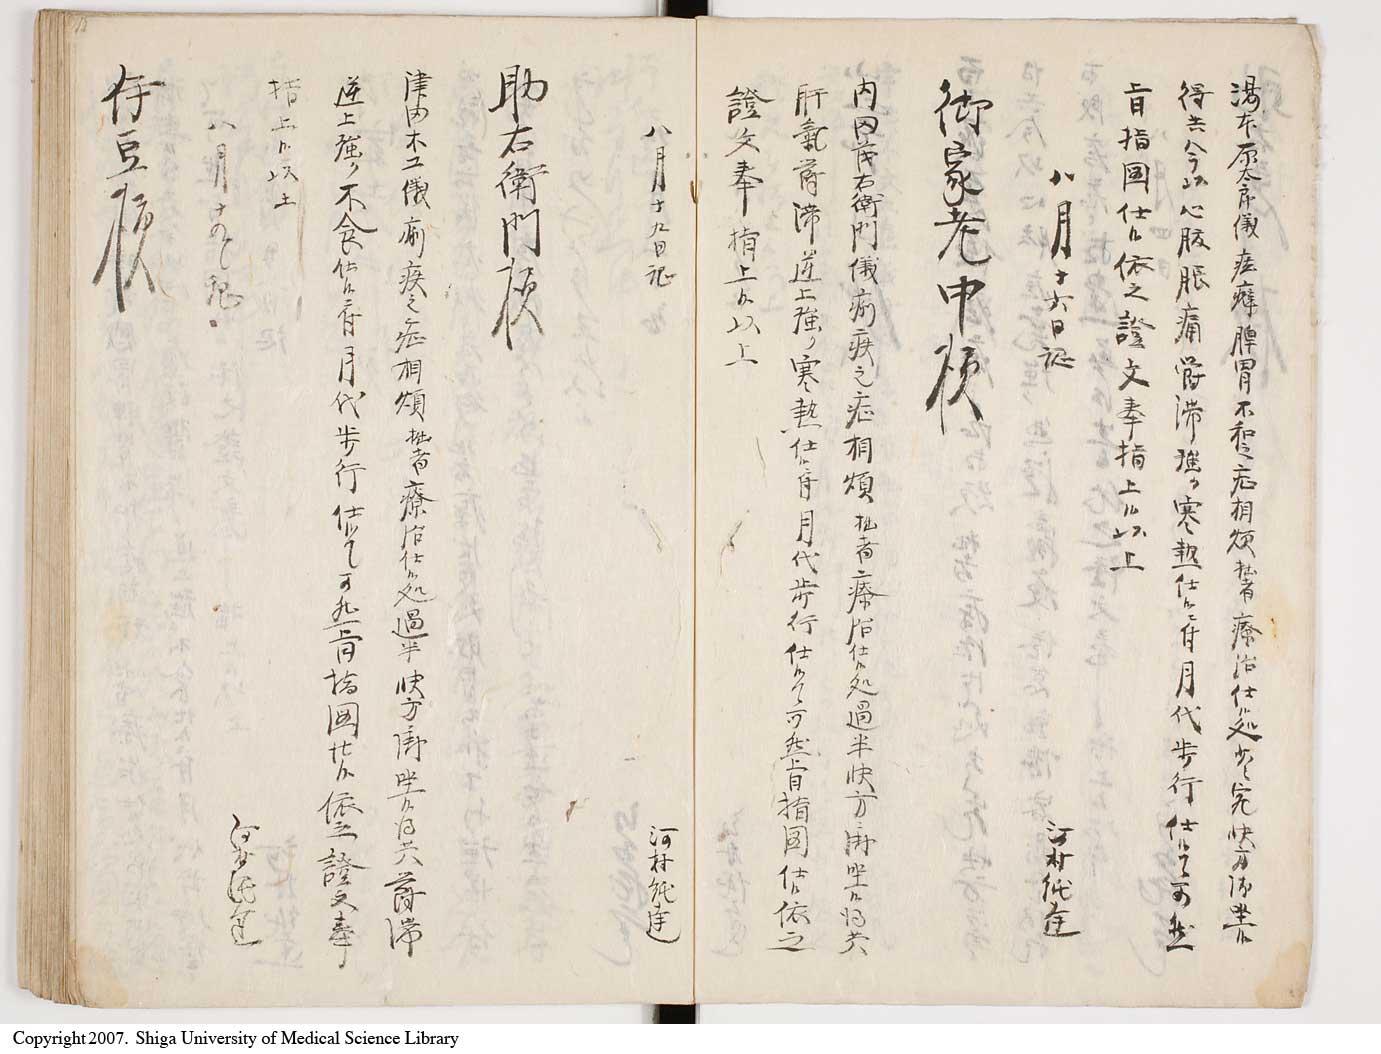 湯本原太郎儀疝癖脾胃不和之症相煩拙者療治仕候処少々宛快方御坐候
得共今以心腹脹痛欝滞強ク寒熱仕候ニ付月代歩行仕候て可然
旨指図仕候依之證文奉指上候以上
八月十六日 証
河村純達
御家老中様
内田茂右衛門儀痢疾之症相煩拙者療治仕候処過半快方御坐候得共
肝氣欝滞逆上強ク寒熱仕候ニ付月代歩行仕候て可然旨指図仕候依之
證文奉指上候以上
八月十九日 証
河村純達
助右衛門様
津田木工儀痢疾之症相煩拙者療治仕候処過半快方御坐候得共欝滞
逆上強ク不食仕候ニ付月代歩行仕候て可然旨指図仕候依之證文奉
指上候以上
八月十
河村純達
伊豆様
Copyright 2007. Shiga University of Medical Science Library